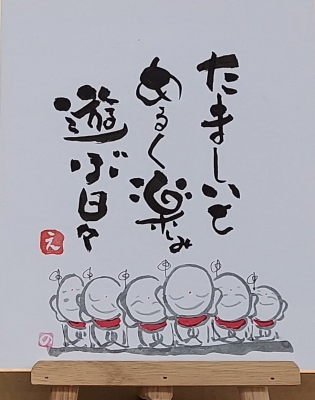 たましいと
あるく楽しみ
遊ぶ日々
え
の